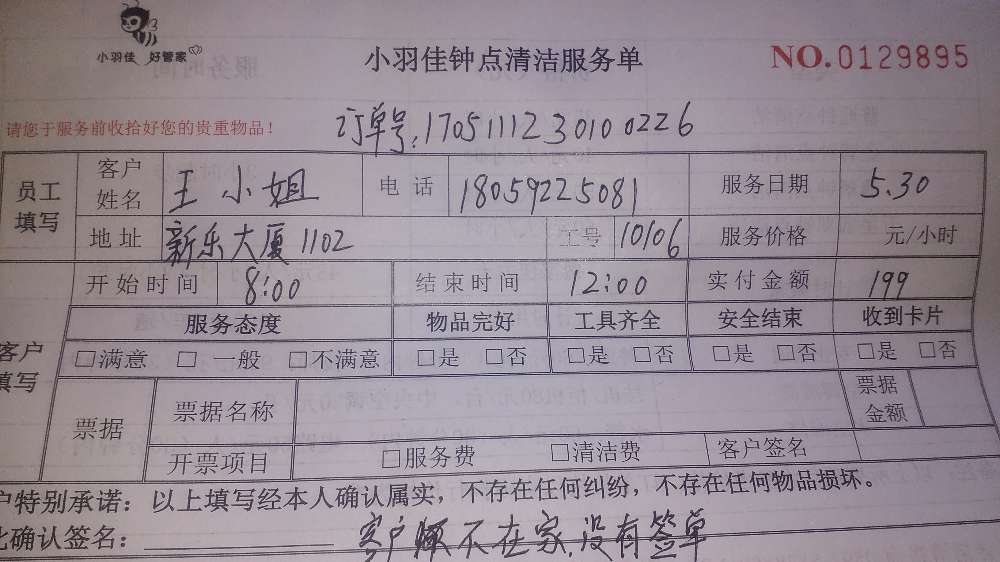 小羽佳 好管家
小羽佳钟点清洁服务单
NO.0129895
请您于服务前收拾好您的贵重物品！
订单号:170511123010 0226
员工填写 客户姓名 王小姐 电话 18059225081 服务日期 5.30
地址 新乐大厦1102 工号 10106 服务价格 元/小时
开始时间 8:00 结束时间 12:00 实付金额 199
客户填写 服务态度 物品完好 工具齐全 安全结束 收到卡片
□满意 □一般 □不满意 □是 □否 □是 □否 □是 □否 □是 □否
票据 票据名称 票据金额
开票项目 □服务费 □清洁费 客户签名
户特别承诺：以上填写经本人确认属实，不存在任何纠纷，不存在任何物品损坏。
此确认签名：
客户 不在家,没有签单